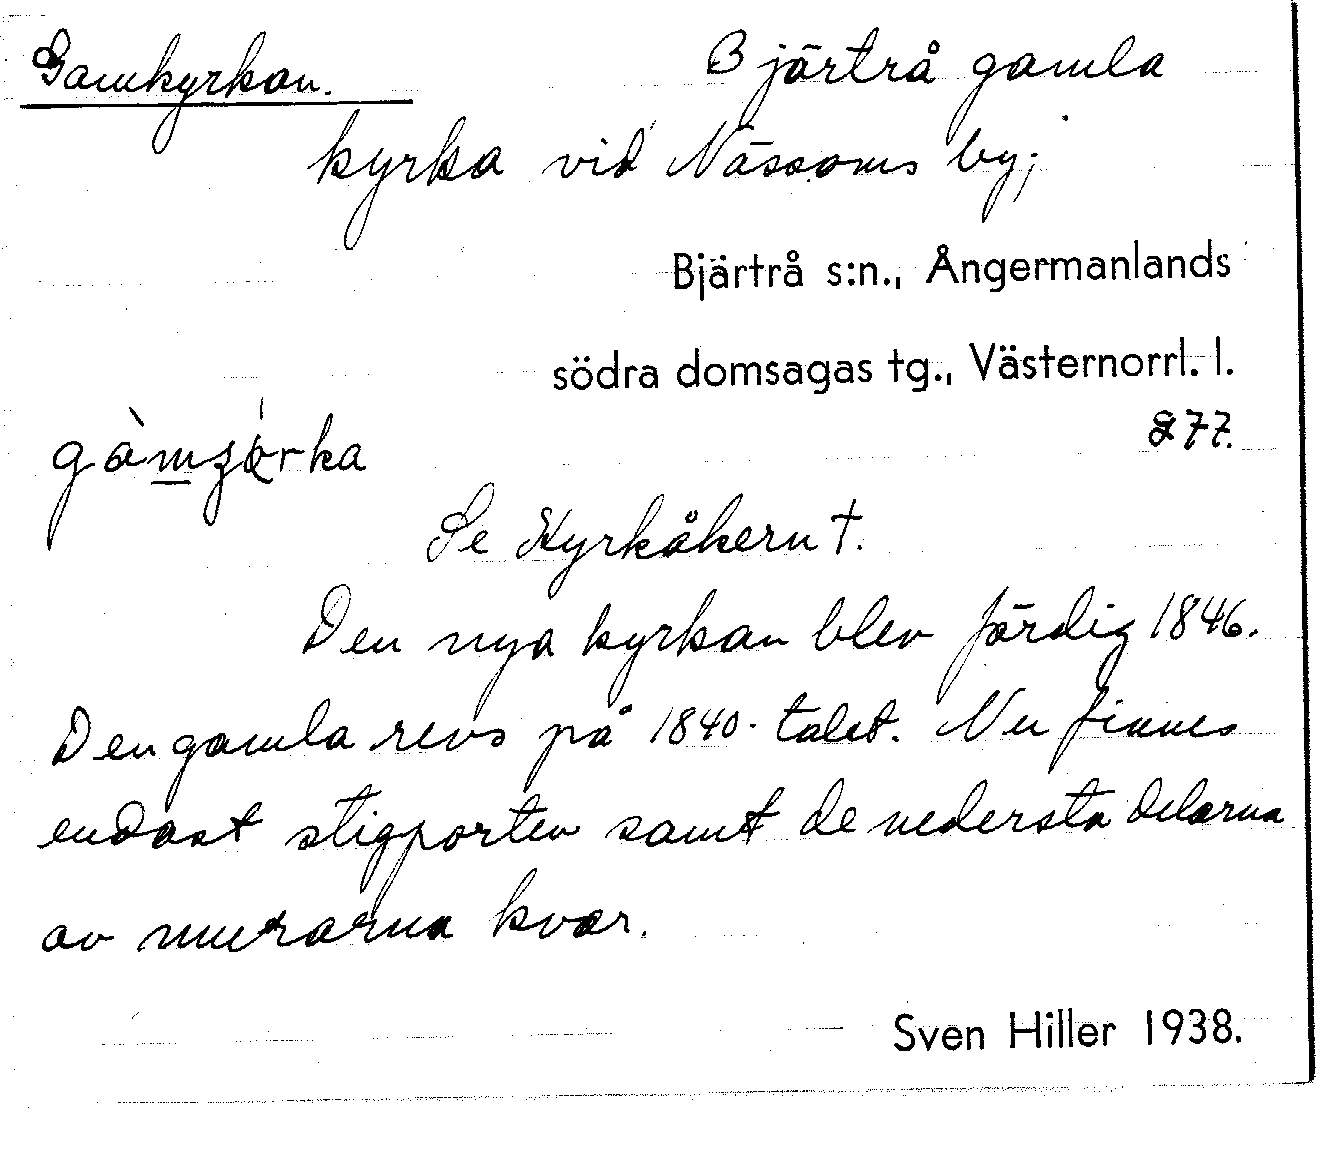 Gamkyrkan. Bjärtrå gamla
kyrka vid Nässoms by;
Bjärtrå s:n., Ångermanlands
södra domsagas tg., Västernorrl. l.
277.
Se Kyrkåkern †.
Den nya kyrkan blev färdig 1846.
Den gamla revs på 1840-talet. Nu finnes
endast stigporten samt de nedersta delarna
av murarna kvar.
Sven Hiller 1938.